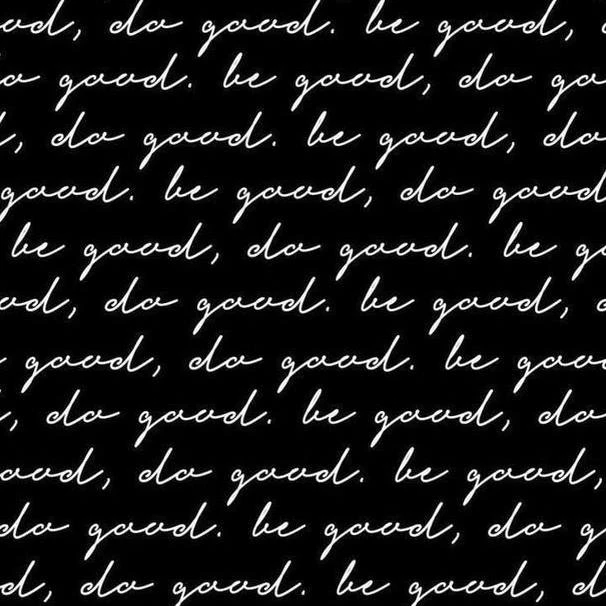 ood, do good. be good,
o good. be good, do go
, do good. be good, do
good. be good, do good
be good, do good. be g
od, do good. be good,
good, do good. be goo
, do good. be good, do
ood, do good. be good,
do good. be good, do g
d, do good. be good, d